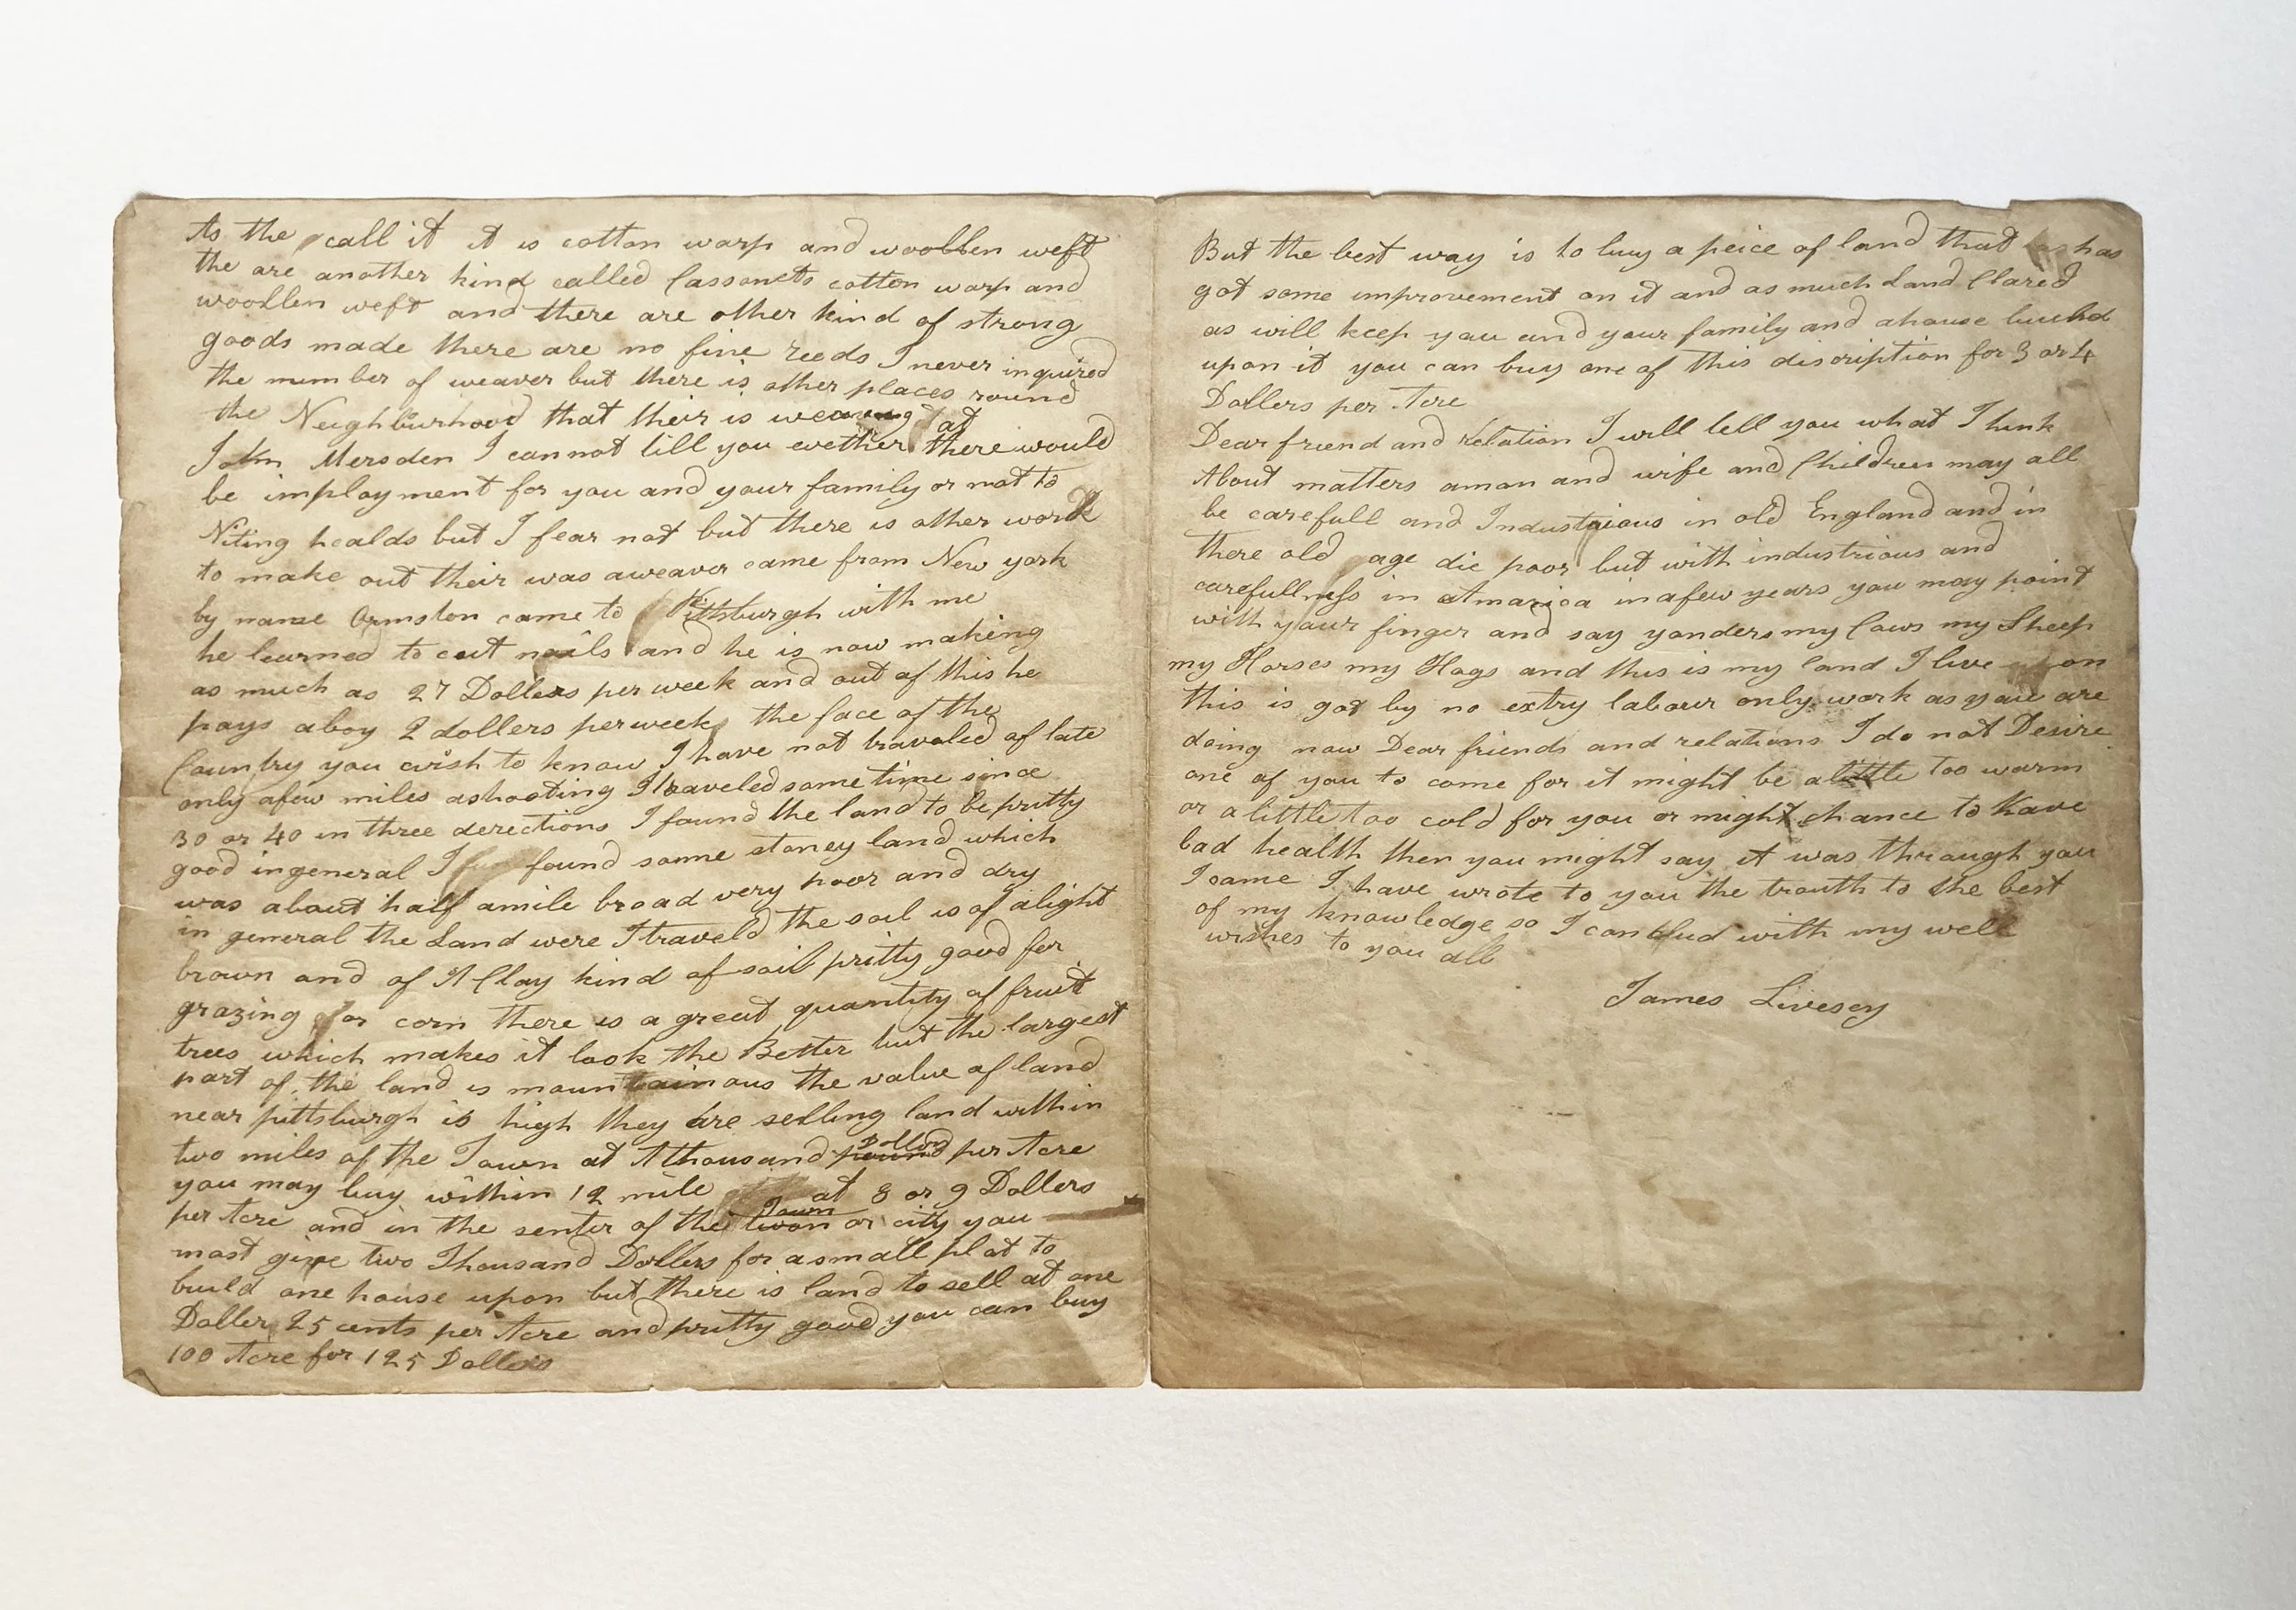 As the call it it is cotton warp and woollen weft
the are another kind called Cassonets cotton warp and
woollen weft and there are other kind of strong
goods made there are no fine reeds I never inquired
the number of weaver but there is other places round
the Neighburhood that their is weaving at
John Mersden I cannot till you wether there would
be imployment for you and your family or not to
Niting healds but I fear not but there is other work
to make out their was aweaver came from New york
by name Ormston came to Pittsburgh with me
he learned to cut nails and he is now making
as much as 27 Dollers per week and out of this he
pays aboy 2 dollers per week the face of the
Country you wish to know I have not traveled of late
only afew miles ashooting I traveled some time since
30 or 40 in three derections I found the land to be pritty
good ingeneral I found some stoney land which
was about half amile broad very poor and dry
in general the Land were I traveld the soil is of alight
brown and of A Clay kind of soil pritty good for
grazing or corn there is a great quantity of fruit
trees which makes it look the Better but the largest
part of the land is mountainous the value of land
near pittsburgh is high they are selling land within
two miles of the Town at A thousand pound Dollers per Acre
you may buy within 12 mile at 8 or 9 Dollers
per Acre and in the senter of the twon Town or city you
most give two Thousand Dollers for a small plat to
build one house upon but there is land to sell at one
Doller 25 cents per Acre and pritty good you can buy
100 Acre for 125 Dollers
But the best way is to buy a peice of land that has
got some improvement on it and as much Land Clared
as will keep you and your family and ahouse
upon it you can buy one of this discription for 3 or 4
Dollers per Acre
Dear friend and Relation I will tell you what I think
About matters aman and wife and Children may all
be carefull and Industrious in old England and in
there old age die poor but with industrious and
carefullness in Amarica in afew years you may point
with your finger and say yonders my Cows my Sheep
my Horses my Hogs and this is my land I live upon
this is got by no extry labour only work as you are
doing now Dear friends and relations I do not Desire
one of you to come for it might be alittle too warm
or alittle too cold for you or might chance to have
bad health then you might say it was through you
I came I have wrote to you the trouth to the best
of my knowledge so I conclud with my well
wishes to you all
James Livesey